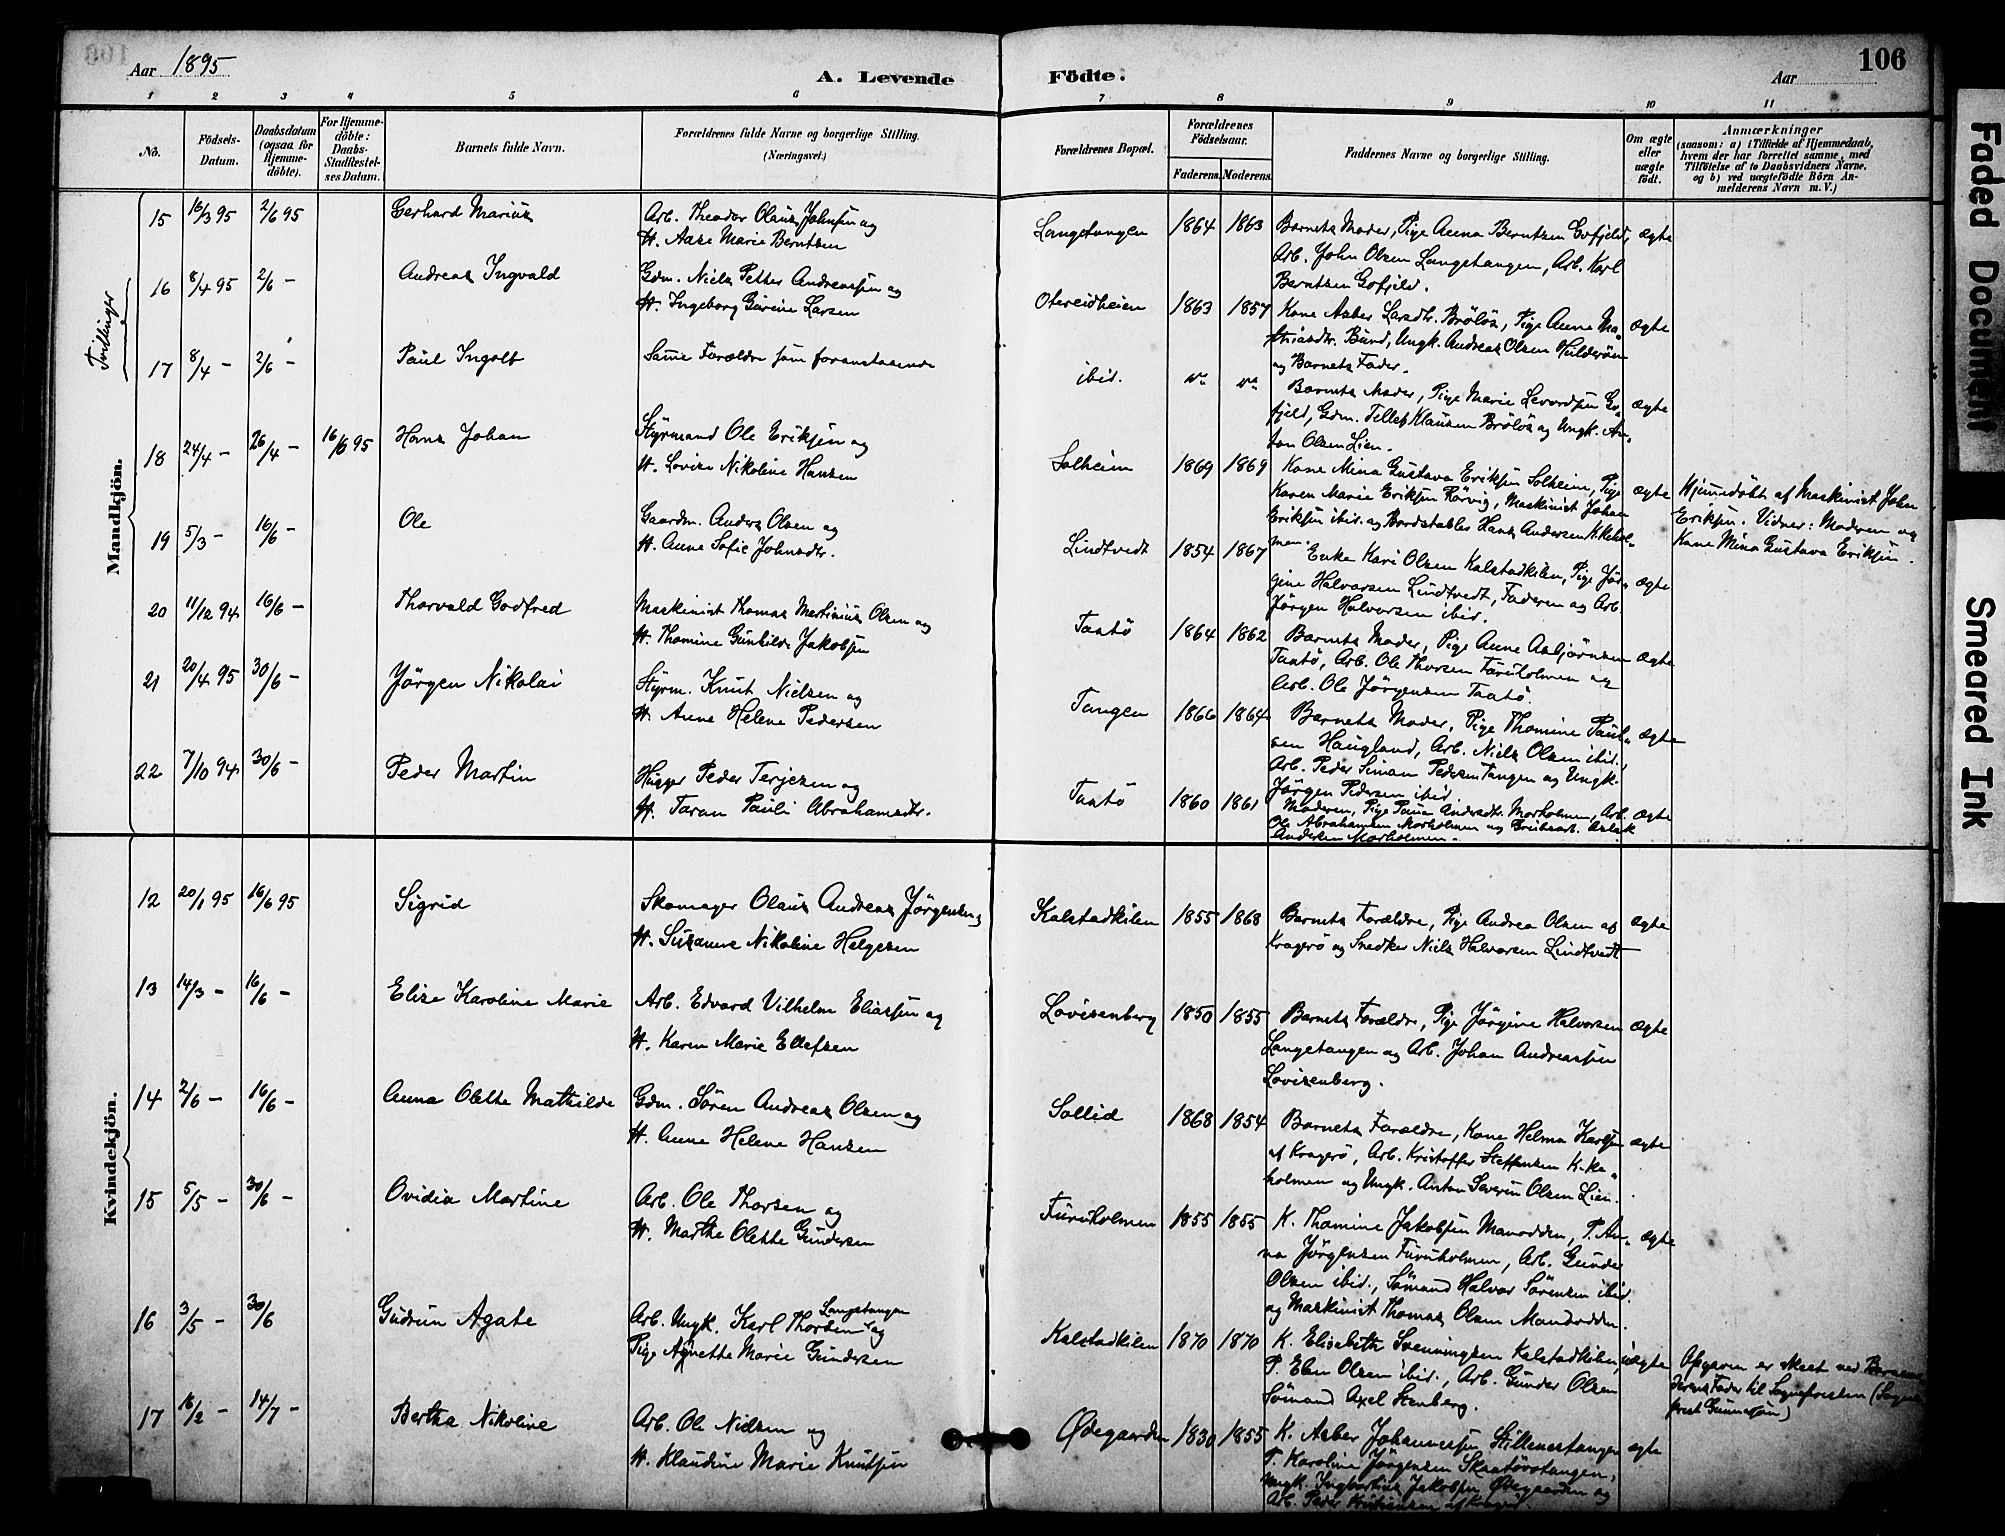 Aar 1895
A. Levende
Födte.
Aar
106
1 2 3 4 5 6 7 8 9 10 11
No.
Födsels-
Datum.
Daabsdatum
(ogsaa for
Hjemme-
döbte).
For Hjemme-
döbte:
Daabs-
Stadfæstel-
ses Datum.
Barnets fulde Navn.
Forældrenes fulde Navne og borgerlige Stilling.
(Næringsvei.)
Forældrenes Bopæl.
Forældrenes
Födselsaar.
Faderens. Moderens.
Faddernes Navne og borgerlige Stilling.
Om ægte
eller
uægte
födt.
Anmærkninger
(saasom: a) i Tilfælde af Hjemmedaab,
hvem der har forrettet samme, med
Tilföielse af to Daabsvidners Navne.
og b) ved uægtefödte Börn An-
melderens Navn m. V.)
Mandkjön.
Tvillinger
15 16/3 95 2/6 95 Gerhard Marius Arb. Theodor Olaus Johnsen og
H. Aase Marie Berntsen
Langetangen 1864 1863 Barnets Moder, Pige Anna Berntsen Gofjeld, ægte
Arb. John Olsen Langetangen, Arb. Karl
Berntsen Gofjeld.
16 8/4 95 2/6 - Andreas Ingvald Gdm. Niels Petter Andreassen og
H. Ingeborg Gurine Larsen
Otereidheien 1863 1857 Kone Asber Larsdtr. Bröløs, Pige Anne Ma- ægte
thiasdtr. Bund, Ungk. Andreas Olsen
og Barnets Fader.
17 8/4 - 2/6 - Paul Ingolf Samme Forældre som foranstaaende
ibid. Barnets Moder, Pige Marie Levordsen Go- ægte
fjeld, Gdm. Tellef Klausen Bröløs og Ungk. An-
ton Olsen Lien.
18 24/4 - 26/4 - 16/6 95 Hans Johan Styrmand Ole Eriksen og
H. Lovise Nikoline Hansen
Solheim 1869 1869 Kone Mina Gustava Eriksen Solheim, Pige ægte
Karen Marie Eriksen Rörvig, Maskinist Johan
Eriksen ibid. og Bordstabler Hans Andersen Kirkehol-
men.
Hjemmedöbt af Maskinist John
Eriksen. Vidner: Moderen og
Kone Mina Gustava Eriksen.
19 5/3 - 16/6 - Ole Gaardm. Anders Olsen og
H. Anne Sofie Johnsdtr.
Lindtvedt 1854 1867 Enke Kari Olsen Kalstadkilen, Pige Jør- ægte
gine Halvorsen Lindtvedt, Faderen og Arb.
Jörgen Halvorsen ibid.
20 11/12 94 16/6 - Thorvald Godfred Maskinist Thomas Martinius Olsen og
H. Thomine Gunhilde Jakobsen
Taatö 1864 1862 Barnets Moder, Pige Anne Asbjørnsen ægte
Taatö, Arb. Ole Thorsen Furuholmen og
Arb. Ole Jörgensen Taatö.
21 20/4 95 30/6 - Jörgen Nikolai Styrm. Knut Nielsen og
H. Anne Helene Pedersen
Tangen 1866 1864 Barnets Moder, Pige Thomine Paul- ægte
sen Haugland, Arb. Niels Olsen ibid.,
Arb. Peder Simon Pedersen Tangen og Ungk.
Jörgen Pedersen ibid.
22 7/10 94 30/6 - Peder Martin Hugger Peder Terjesen og
H. Taran Pauli Abrahamsdtr.
Taatö 1860 1861 Moderen, Pige Andersdtr. Morholmen, Arb. ægte
Ole Abrahamsen Morholmen og Aslak
Andersen Morholmen.
Kvindekjön.
12 20/1 95 16/6 95 Sigrid Skomager Olaus Andreas Jörgensen og
H. Susanne Nikoline Helgesen
Kalstadkilen 1855 1868 Barnets Forældre, Pige Andrea Olsen af ægte
Kragerö og Snedker Niels Halvorsen Lindtvedt
13 14/3 - 16/6 - Elise Karoline Marie Arb. Edvard Vilhelm Eliassen og
H. Karen Marie Ellefsen
Lovisenberg 1850 1855 Barnets Forældre, Pige Jörgine Halvorsen ægte
Langetangen og Arb. Johan Andreassen
Lovisenberg.
14 2/6 - 16/6 - Anna Olette Mathilde Gdm. Sören Andreas Olsen og
H. Anne Helene Hansen
Sollid 1868 1854 Barnets Forældre, Kone Helma Karlsen ægte
af Kragerö, Arb. Kristoffer Steffensen Kirke-
holmen og Ungk. Anton Severin Olsen Lien.
15 5/5 - 30/6 - Ovidia Martine Arb. Ole Thorsen og
H. Marthe Olette Gundersen
Furuholmen 1855 1855 K. Thomine Jakobsen Manodden, P. An- ægte
na Jörgensen Furuholmen, Arb. Gunder
Olsen ibid., Sömand Halvor Sörensen ibid.
og Maskinist Thomas Olsen Manodden.
16 3/5 - 30/6 Gudrun Agate Arb. Ungk. Karl Thorsen Langetangen og
Pige Agnette Marie Gundersen
Kalstadkilen 1870 1870 K. Elisabeth Svenningsen Kalstadkilen, uægte
P. Elen Olsen ibid., Arb. Gunder Olsen
Sömand Axel Stenberg.
Opgaven er skeet ved Barne-
Fader til Sognepresten (Sogne-
prest Gunnesön)
17 16/2 - 14/7 - Bertha Nikoline Arb. Ole Nielsen og
H. Klaudine Marie Knutsen
Ødegaarden 1830 1855 K. Asber Johannessen Stillenestangen ægte
P. Karoline Jörgensen Skaatövestangen,
Ungk. Ingbertius Jakobsen Ødegaarden og
Arb. Peder Kristiansen af Kragerö.
Faded Document
Smeared Ink